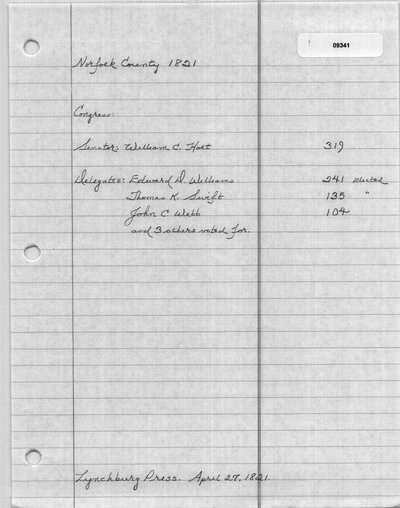 09341
Norfolk County 1821
Congress:
Senator: William C. Holt 319
Delegates: Edward D. Williams 241 elected
Thomas K. Swift 135 "
John C Webb 104
and 3 others voted for.
Lynchburg Press. April 27, 1821.